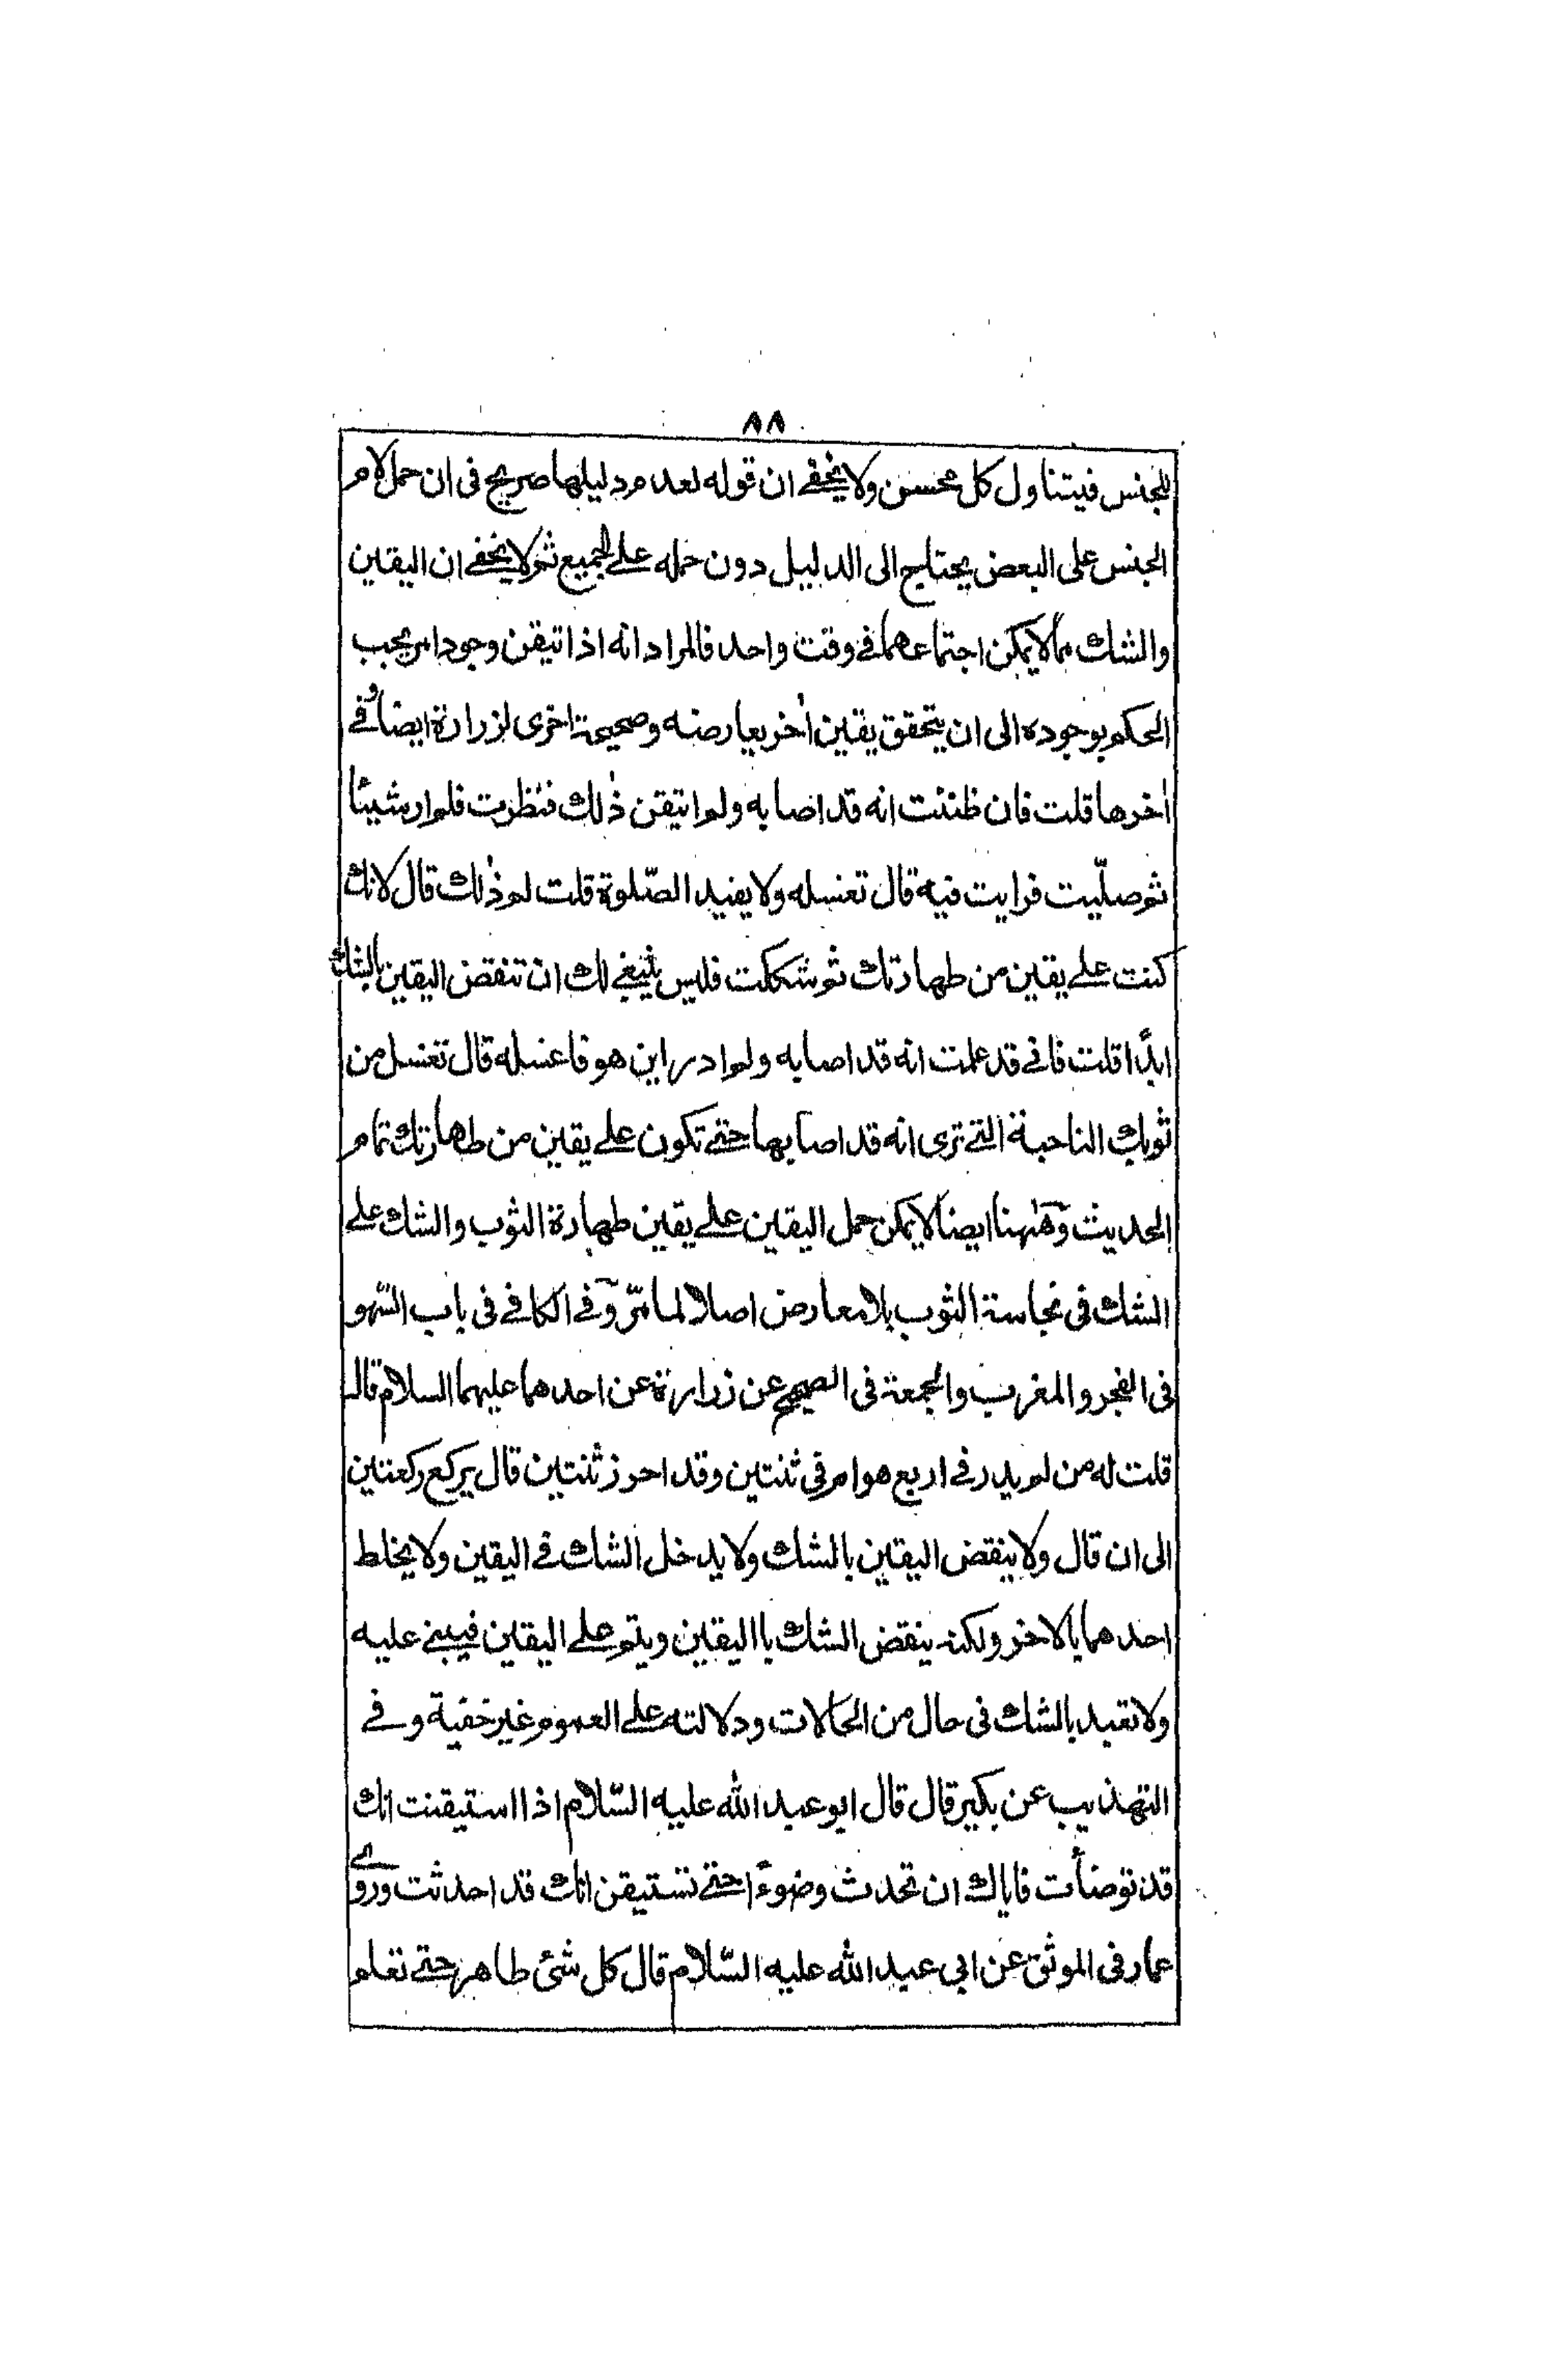 ٨٨
للجنس فيتناول كل محسن ولا يخفے ان قوله لعدم دليلها صريح فى ان حمل لام
الجنس على البعض يحتاج الى الدليل دون حمله علے الجميع ثم لا يخفے ان اليقين
والشك مما لا يمكن اجتماعهما فے وقت واحد فالمراد انه اذا تيقن وجود امر يجب
الحكم بوجوده الى ان يتحقق يقين اٰخر يعارضه وصحيحة اخرى لزرارة ايضا وفے
اٰخرها قلت فان ظننت انه قد اصابه ولم اتيقن ذٰلك فنظرت فلم ار شيئا
ثم صلّيت فرايت فيه قال تغسله ولا يفيد الصّلوة قلت لم ذٰلك قال لانك
كنت علے يقين من طهارتك ثم شككت فليس ينبغے لك ان تنقض اليقين بالشك
ابدًا قلت فانے قد علمت انه قد اصابه ولم ادر اين هو فاغسله قال تغسل من
ثوبك الناحية التے ترى انه قد اصابها حتے تكون علے يقين من طهارتك تمام
الحديث وهٰهنا ايضا لا يمكن حمل اليقين علے يقين طهارة الثوب والشك علے
الشك فى نجاسة الثوب بلا معارض اصلا لما مرّ وفے الكافے فى باب السّهو
فى الفجر والمغرب والجمعة فى الصحيح عن زرارة عن احدهما عليهما السلام قال
قلت له من لم يدر فے اربع هو ام فى ثنتين وقد احرز ثنتين قال يركع ركعتين
الى ان قال ولا ينقض اليقين بالشك ولا يدخل الشك فے اليقين ولا يخلط
احدهما بالاخر ولكنه ينقض الشك باليقين ويتم علے اليقين فيبنے عليه
ولا تعيد بالشك فى حال من الحالات ودلالته علے العموم غير خفية وفے
التهذيب عن بكير قال قال ابو عبد الله عليه السّلام اذا استيقنت انك
قد توضأت فاياك ان تحدث وضوءً احتے تستيقن انك قد احدثت وروى
عمار فى الموثق عن ابى عبد الله عليه السّلام قال كل شئ طاهر حتے تعلم